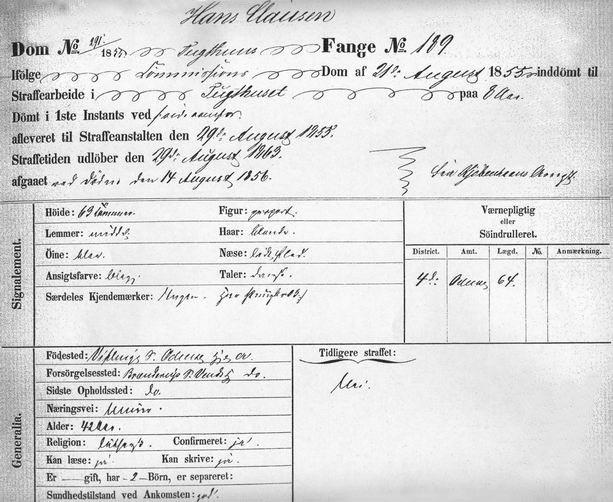 Hans Clausen
Dom No 191 1855 Tugthuus Fange No 189.
Ifölge Commissions Dom af 21de August 1855 inddömt til
Straffearbeide i Tugthuset paa 8 Aar.
Dömt i 1ste Instants ved
afleveret til Straffeanstalten den 29de August 1855.
Straffetiden udlöber den 29de August 1863.
afgaaet ved Döden den 14 August 1856.
Signalement.
Höide: 63 Tommer Figur:
Lemmer: Haar: blonde
Öine: blaa Næse:
Ansigtsfarve: Taler: dansk
Særdeles Kjendemærker: Ingen.
Værnepligtig
eller
Söindrulleret.
District. Amt. Lægd. No. Anmærkning.
4de Odense 64.
Generalia.
Födested: Odense
Forsörgelsessted: do.
Sidste Opholdssted: do.
Næringsvei:
Alder: 42 Aar.
Religion: luthersk. Confirmeret: ja.
Kan læse: ja Kan skrive: ja.
Er — gift, har - 2 - Börn, er separeret:
Sundhedstilstand ved Ankomsten: god.
Tidligere straffet:
Nei.